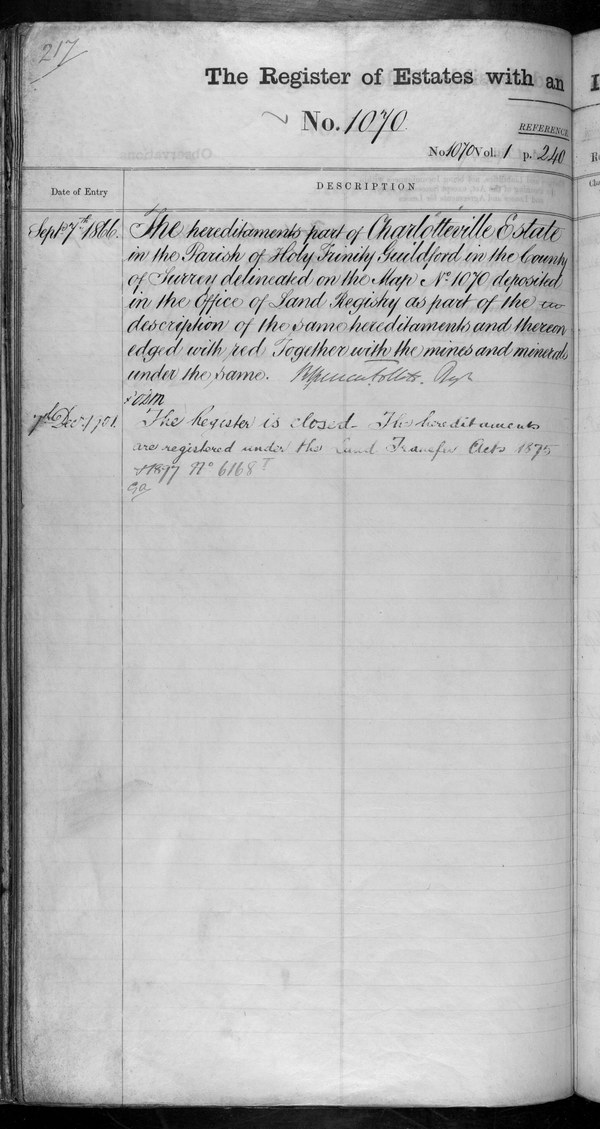 217
The Register of Estates with an
No. 1070.
REFERENCE
No 1070 Vol. 1 p. 240
Date of Entry
DESCRIPTION
Septr 7th 1866. The hereditaments part of Charlotteville Estate
in the Parish of Holy Trinity Guildford in the County
of Surrey delineated on the Map No 1070 deposited
in the Office of Land Registry as part of the
description of the same hereditaments and thereon
edged with red Together with the mines and minerals
under the same.
7th Decr 1901. The Register is closed - The hereditaments
are registered under the Land Transfer Acts 1875
& 1897 No 6168